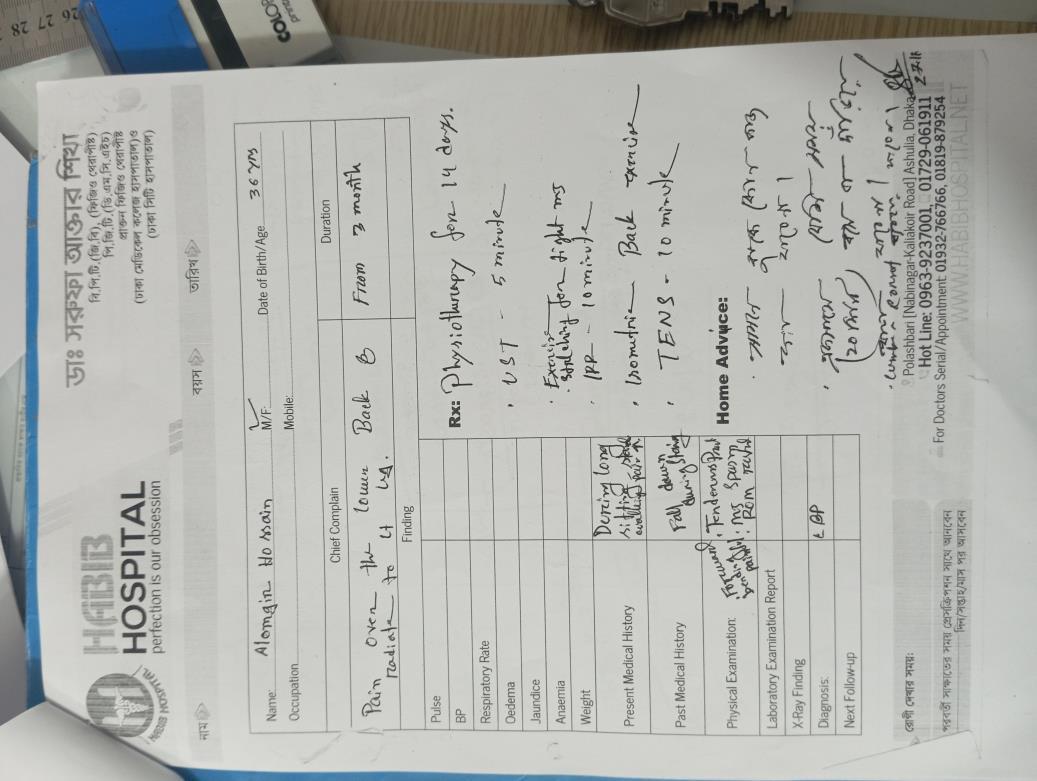 HABIB
HOSPITAL
perfection is our obsession
HABIB HOSPITAL
ডাঃ সরুফা আক্তার শিখা
বি,পি,টি,(জি,বি), (ফিজিও থেরাপিষ্ট)
পি,জি,টি,(ডি,এম,সি,এইচ)
প্রাক্তন ফিজিও থেরাপিষ্ট
(ঢাকা মেডিকেল কলেজ হাসপাতাল)ও
(ঢাকা সিটি হাসপাতাল)
নাম বয়স তারিখ
Name: Alomgin Hossain M/F: Date of Birth/Age: 36 yrs
Occupation Mobile:
Chief Complain Duration
Pain over the lower Back & From 3 month
radiate to Lt Leg.
Finding
Pulse
BP
Respiratory Rate
Oedema
Jaundice
Anaemia
Weight
Present Medical History During long sitting
Past Medical History Fall down during
Physical Examination: Forward bending pain
ms spasm
ROM
Laboratory Examination Report
X-Ray Finding
Diagnosis: LBP
Next Follow-up
Rx: Physiotherapy for 14 days.
UST - 5 minute
Exercise
stretching for tight ms
IRR - 10 minute
Isometric Back exercise
TENS - 10 minute
Home Advuice:
রোগী দেখার সময়:
পরবর্তী সাক্ষাতের সময় প্রেসক্রিপশন সাথে আনবেন
দিন/সপ্তাহ/মাস পর আসবেন
Polashbari [Nabinagar-Kaliakoir Road] Ashulia, Dhaka
Hot Line: 0963-9237001, 01729-061911
For Doctors Serial/Appointment: 01932-766766, 01819-879254
WWW.HABBHOSPITAL.NET
26 27 28
COLOR